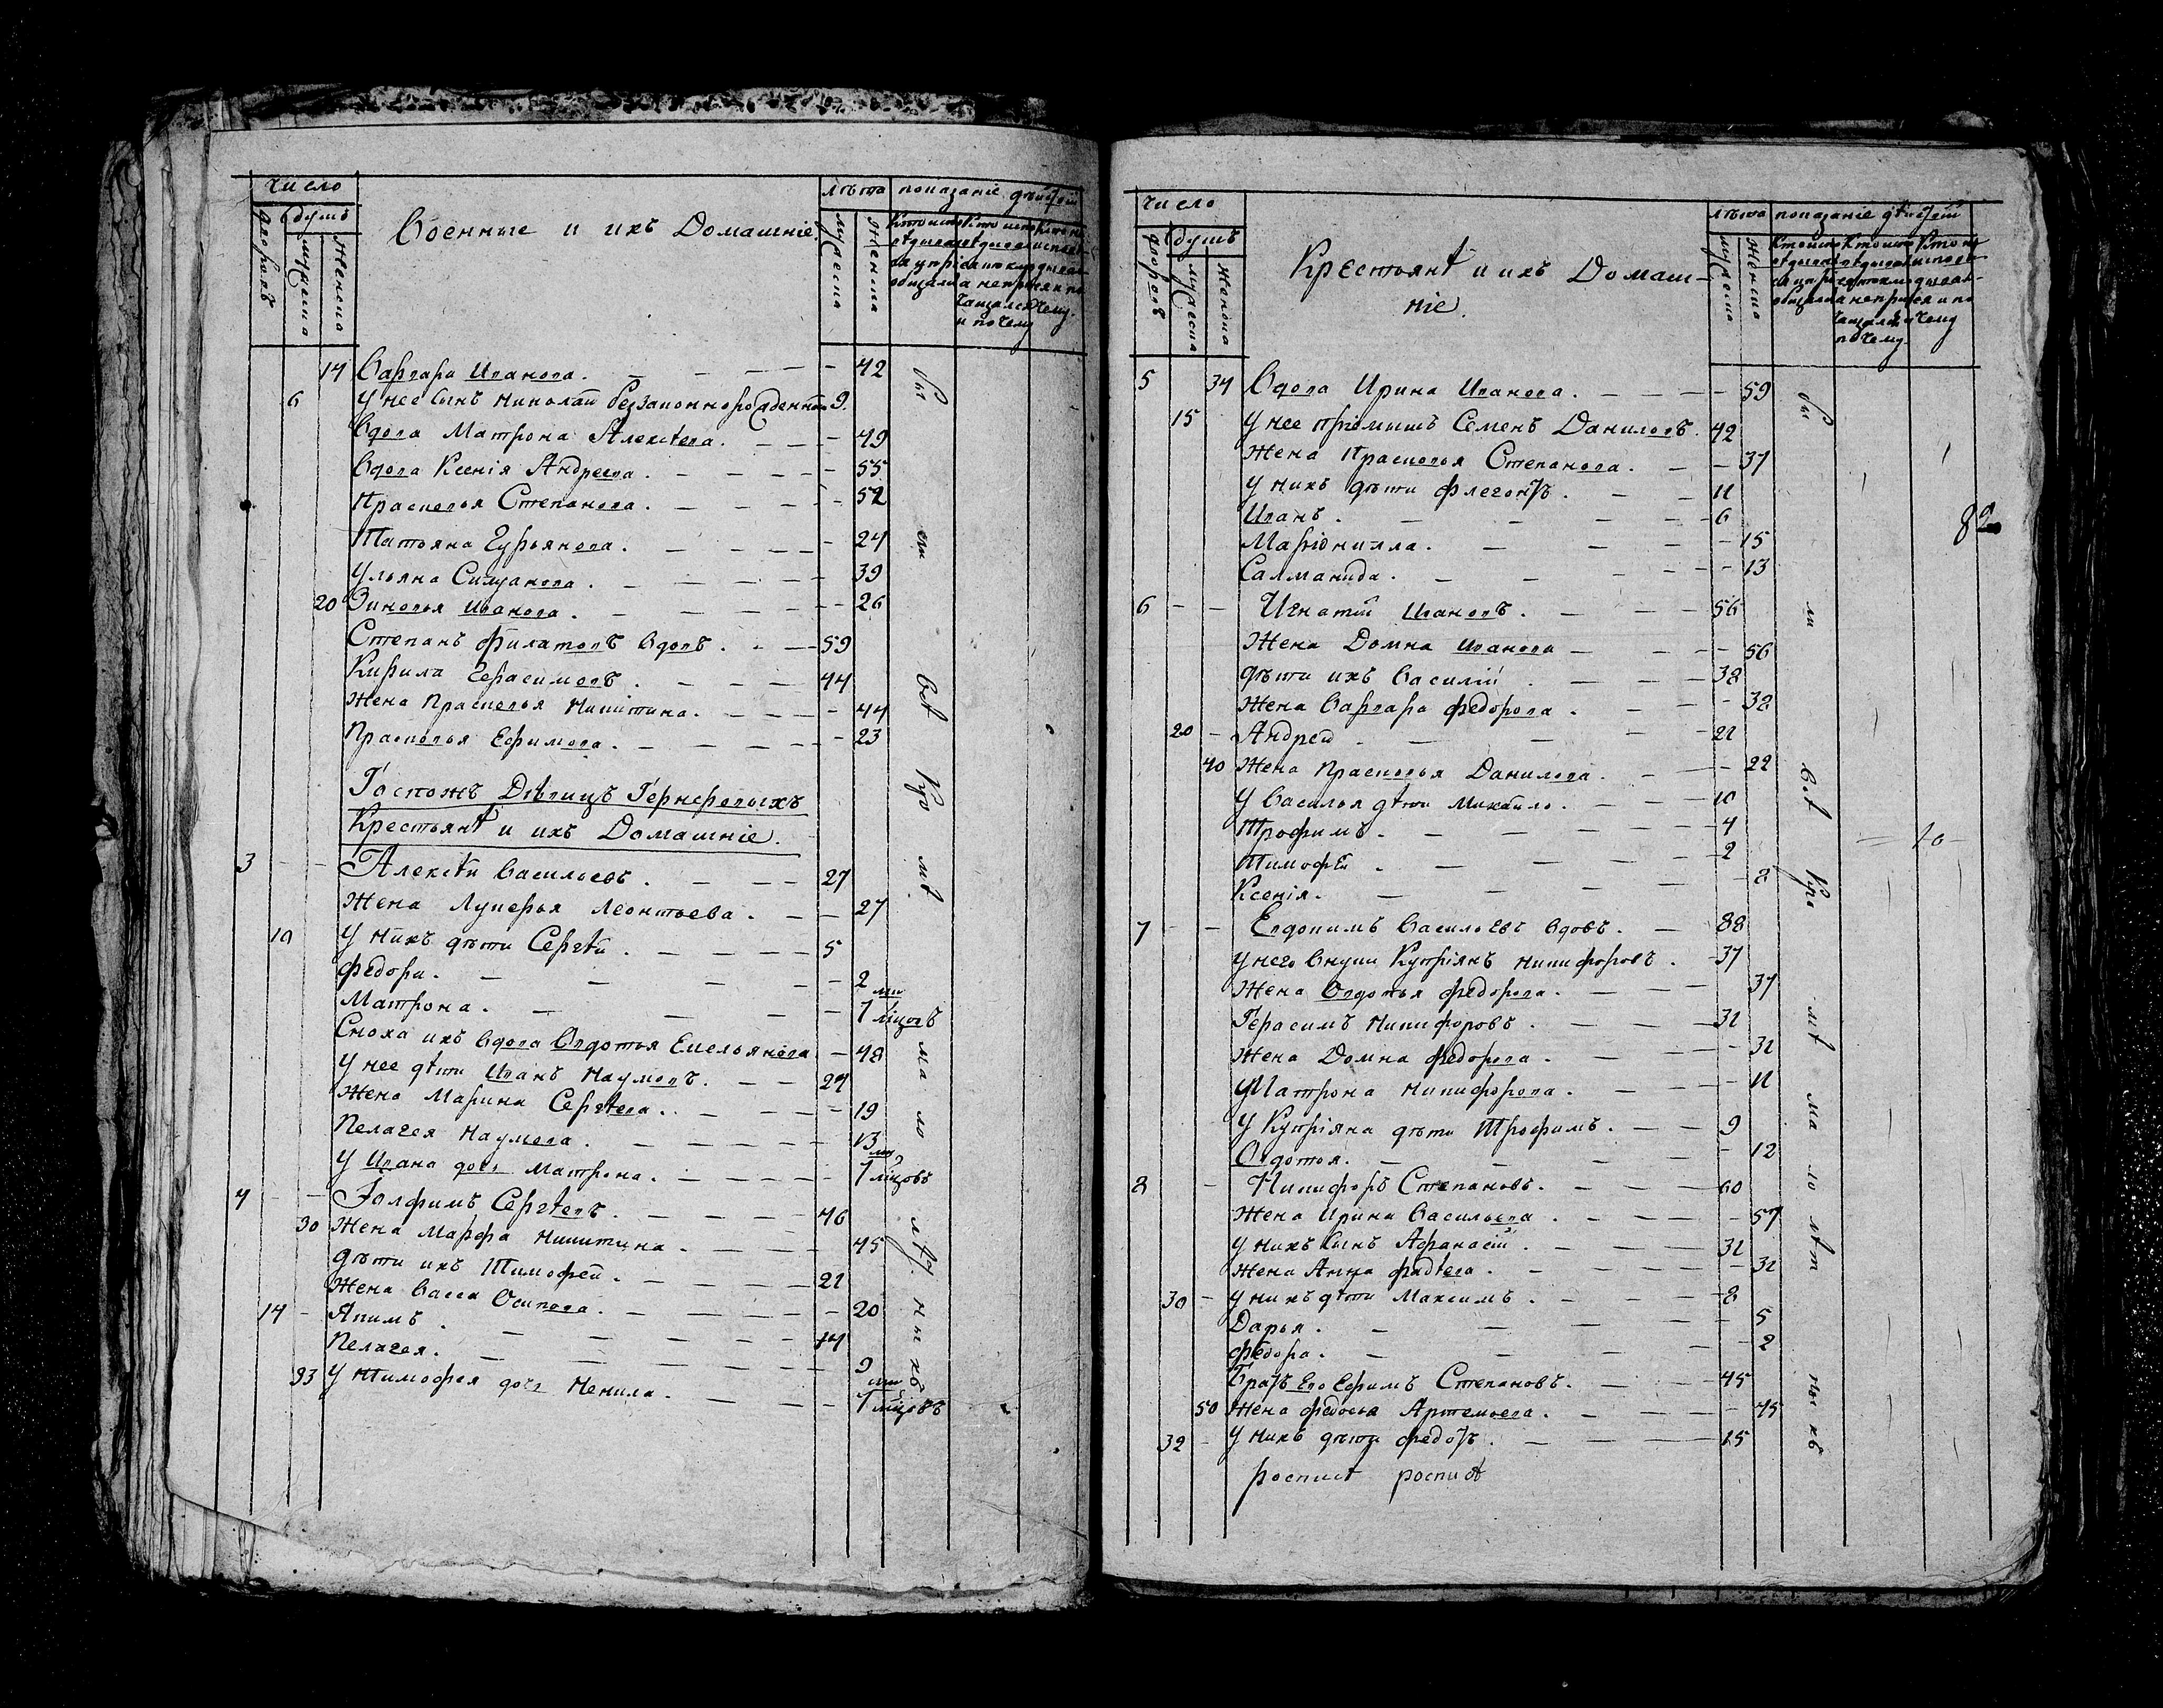 Число
дворовъ
душъ
мужеска
женска
Военные и ихъ Домашніе.
лѣта
мужска
женска
показаніе дѣйствій
14 Варвара Иванова. 42
6 У нее сынъ Николай беззаконнорожденный 9.
Вдова Матрона Алексѣева. 49
Вдова Ксенія Андреева. 55
Прасковья Степанова. 52
Татьяна Гурьянова. 24
Ульяна 39
20 Зиновья Иванова. 26
Степанъ Филатовъ вдовъ. 59
Кирила Герасимовъ. 44
Жена Прасковья Никитина. 44
Прасковья Ефимова. 23
Госпожъ Дѣвицъ
Крестьянѣ и ихъ Домашніе.
3 Алексѣй Васильевъ. 27
Жена Лукерья Леонтьева. 27
10 У нихъ дѣти Сергѣй. 5
Федора. 2
Матрона. 1
Сноха ихъ вдова Овдотья Емельянова 48
У нее дѣти Иванъ Наумовъ. 24
Жена Марина Сергѣева. 19
Пелагея Наумова. 13
У Ивана дочь Матрона. 1
4 Сергѣевъ. 46
30 Жена Марфа Никитина. 45
Дѣти ихъ Тимофей. 21
Жена Васса Осипова. 20
14 Якимъ. 14
Пелагея. 9
33 У Тимофея дочь Ненила. 1
были всѣ кромѣ малолѣтныхъ
Число
дворовъ
душъ
мужеска
женска
Крестьянѣ и ихъ Домаш-
ніе.
лѣта
мужеска
женска
показаніе дѣйствій
5 34 Вдова Ирина Иванова. 59
15 У нее пріемышъ Семенъ Даниловъ. 42
Жена Прасковья Степанова. 37
У нихъ дѣти Флегонтъ. 11
Иванъ. 6
Маріонилла. 15
Саламанида. 13
6 Игнатій Ивановъ. 56
Жена Домна Иванова 56
дѣти ихъ Василій 38
Жена Варвара Федорова. 38
20 Андрей. 22
40 Жена Прасковья Данилова. 22
У Василья дѣти Михайло. 10
Трофимъ. 4
Тимофѣй. 2
Ксенія. 8
7 Евдокимъ Васильевъ вдовъ. 88
У него внуки Купріянъ Никифоровъ. 37
Жена Овдотья Федорова. 37
Герасимъ Никифоровъ. 32
Жена Домна Федорова. 32
Матрона Никифорова. 11
У Купріяна дѣти Трофимъ. 9
Овдотья. 12
8 Никифоръ Степановъ. 60
Жена Ирина Васильева. 57
У нихъ сынъ Афанасій. 32
Жена Анна Фадѣева. 32
30 У нихъ дѣти Максимъ. 8
Дарья. 5
Федора. 2
Братъ Его Ефимъ Степановъ. 45
50 Жена Федосья Артемьева. 45
32 У нихъ дѣти Федотъ. 15
были всѣ кромѣ малолѣтныхъ